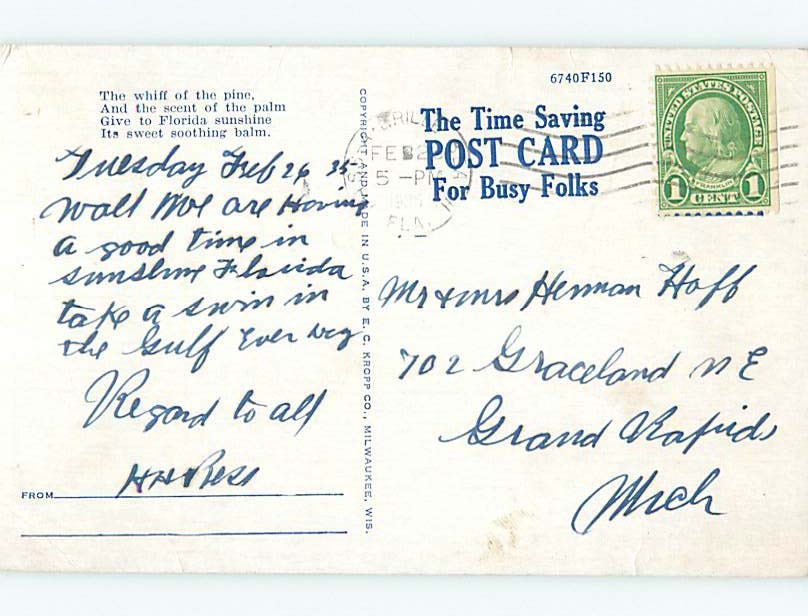 The whiff of the pine,
And the scent of the palm
Give to Florida sunshine
Its sweet soothing balm.
Tuesday Feb 26 35
Wall We are Having
a good time in
sunshine Florida
take a swim in
the Gulf Ever Day
Regard to all
H H Ress
FROM
COPYRIGHT AND MADE IN U.S.A. BY E. C. KROPP CO., MILWAUKEE, WIS.
6740F150
The Time Saving
POST CARD
For Busy Folks
FEB
5 - PM
FLA.
UNITED STATES POSTAGE
FRANKLIN
1 CENT 1
Mr & mrs Herman Hoff
702 Graceland N E
Grand Rapids
Mich